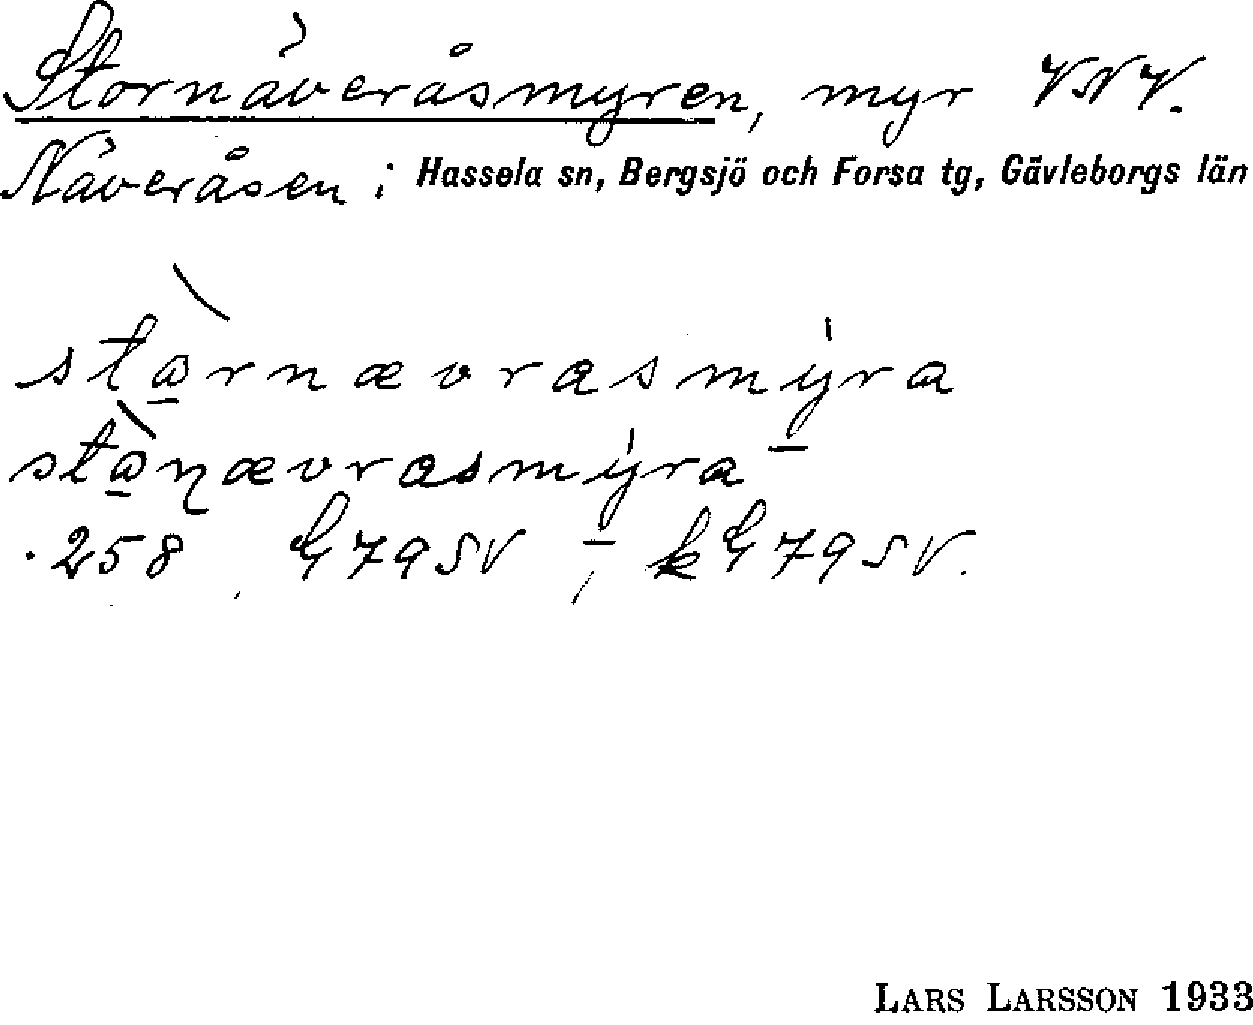 Stornäveråsmyren, myr VNV.
Näveråsen i Hassela sn, Bergsjö och Forsa tg, Gävleborgs län
starnævrasmýra
staɳævrasmýra
258 G79SV, kG79SV.
LARS LARSSON 1933